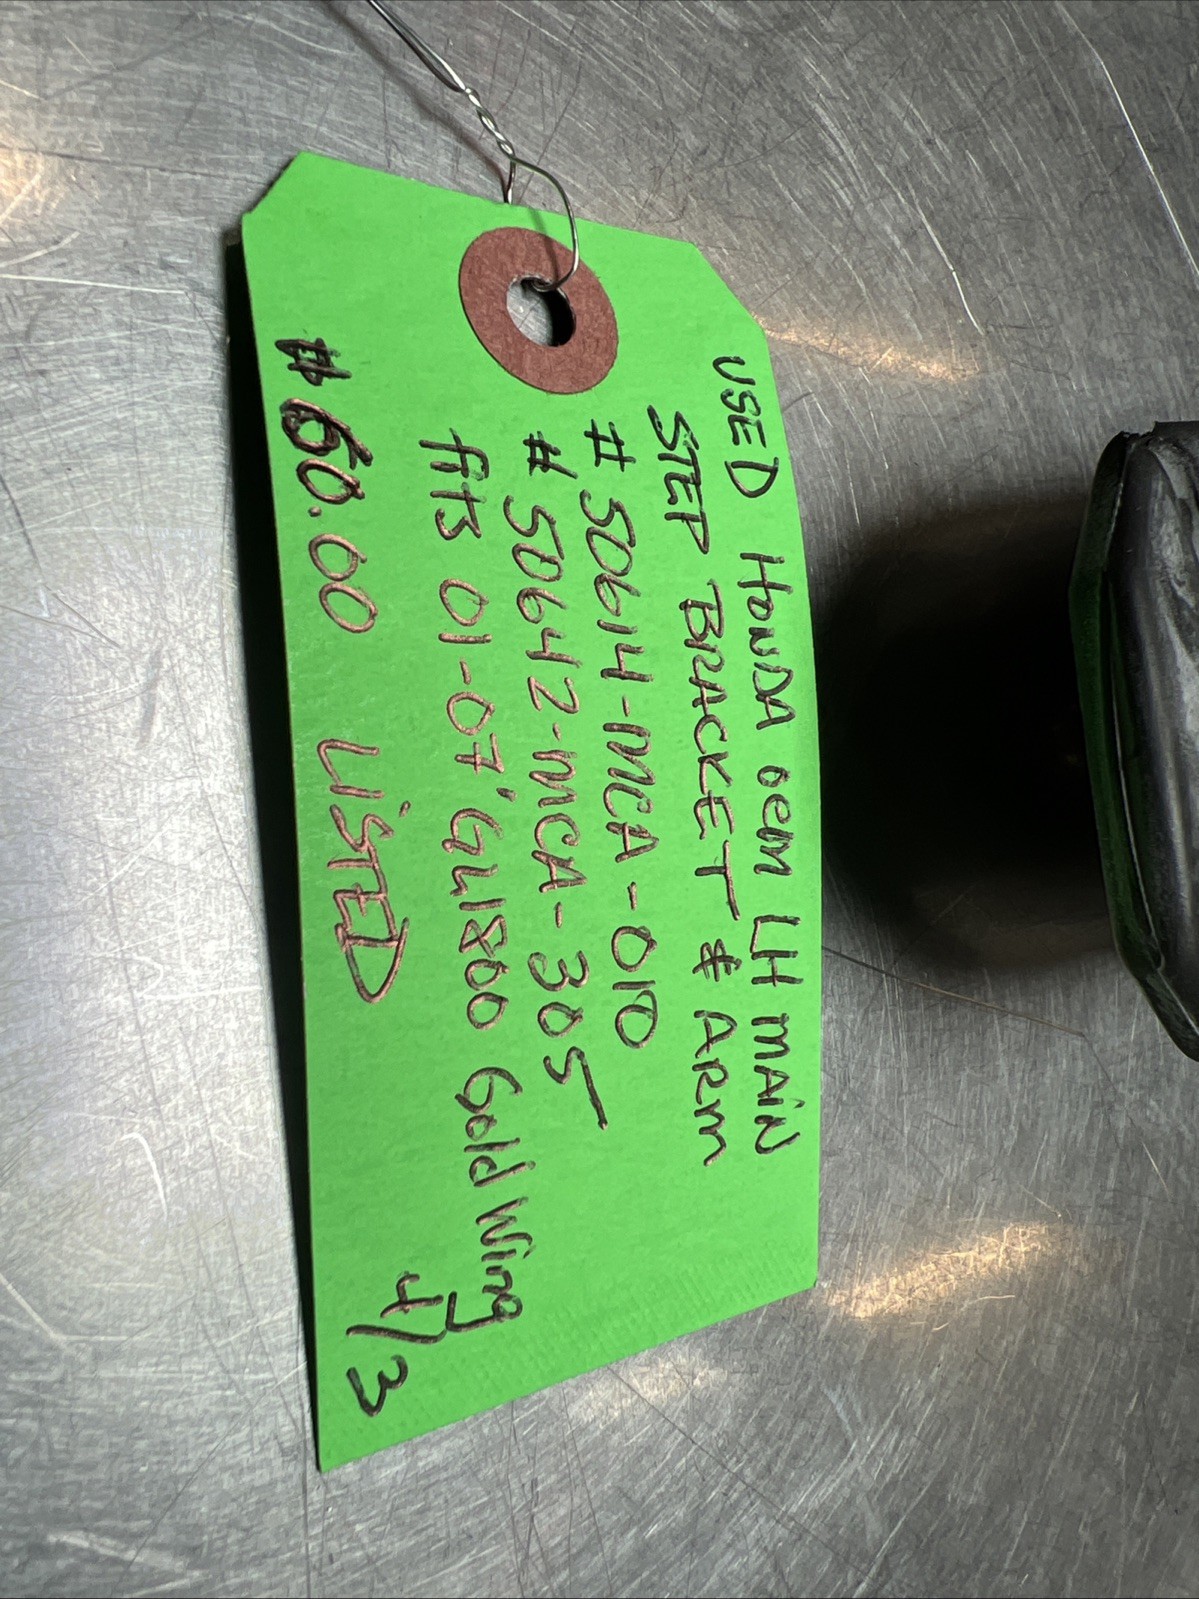 USED HONDA oem LH MAIN
STEP BRACKET & ARM
# 50614-MCA-010
# 50642-MCA-305
fits 01-07' GL1800 Gold Wing
# 60.00 LISTED 4/3